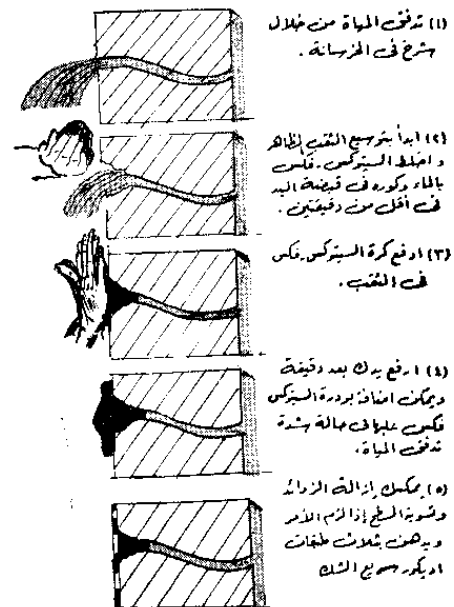 (١) تدفق المياة من خلال
شرخ فى الخرسانة .
(٢) ابدأ بتوسيع الثقب الظاهر
و اخلط السيتوكس - فكس
بالماء وكوره فى قبضة اليد
فى أقل من دقيقتين .
(٣) ادفع كرة السيتوكس - فكس
فى الثقب .
(٤) ارفع يدك بعد دقيقة
ويمكن اضافة بودرة السيتوكس
فكس عليها فى حالة شدة
تدفق المياة .
(٥) يمكنك إزالة الزوائد
وتسوية السطح إذا لزم الأمر
ويدهن بثلاث طبقات
اديكور سريع الشك